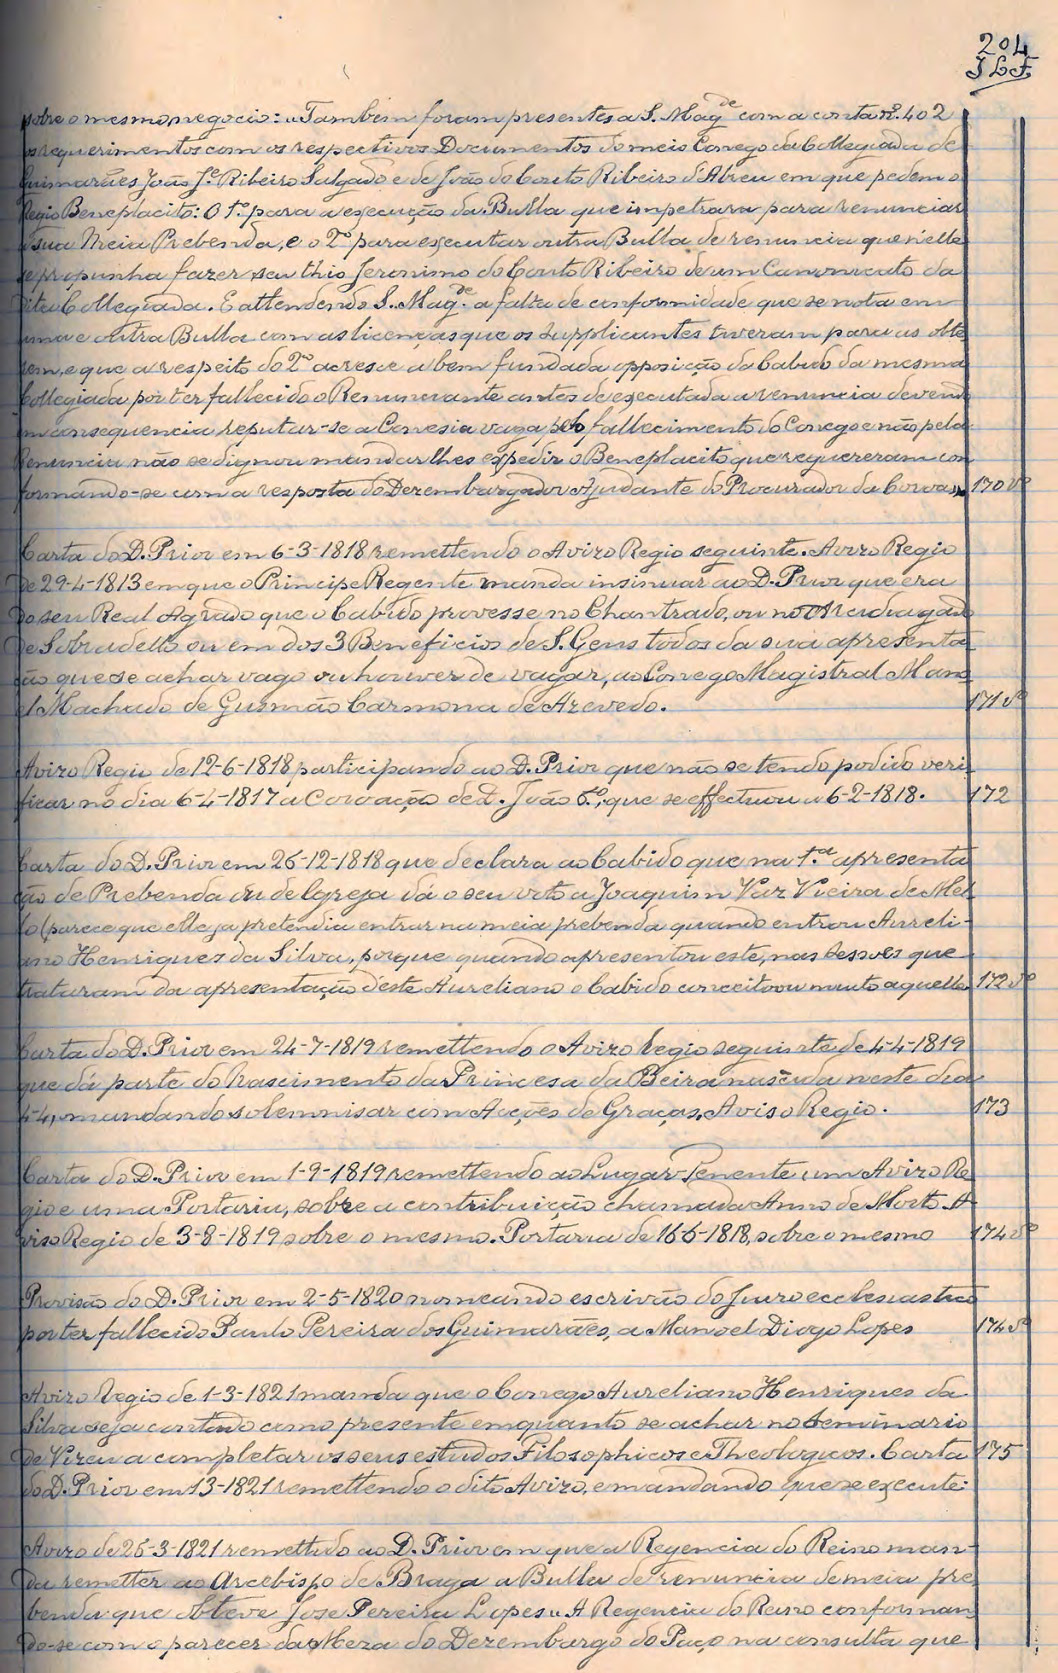 204
sobre o mesmo negocio: "Tambem foram presentes a S. Mag.de com a conta nº 402
os requerimentos com os respectivos Documentos do meio Conego da Collegiada de
Guimarães João J.e Ribeiro Salgado e de João do Couto Ribeiro d'Abreu em que pedem o
Regio Beneplacito: O 1º para a execução da Bulla que impetrara para renunciar
a sua Meia Prebenda, e o 2º para executar outra Bulla de renuncia que n'elle
se propunha fazer seu thio Jeronimo do Couto Ribeiro de um Canonicato da
dita Collegiada. E attendendo S. Mag.de a falta de conformidade que se nota em
uma e outra Bulla com as licenças que os supplicantes tiveram para as obte
rem, e que a respeito do 2º acresce a bem fundada opposição do Cabido da mesma
Collegiada por ter fallecido o Renunciante antes de executada a renuncia devendo
em consequencia reputar-se a Conesia vaga pelo fallecimento do Conego e não pela
Renuncia não se dignou mandar lhes expedir o Beneplacito que requereram con
formando-se com a resposta do Dezembargador Ajudante do Procurador da Coroa", 170 vº
Carta do D. Prior em 6-3-1818 remettendo o Avizo Regio seguinte. Avizo Regio
de 29-4-1813 em que o Principe Regente manda insinuar ao D. Prior que era
do seu Real Agrado que o Cabido provesse no Chantrado, ou no Arcediagado
de Sobradello ou em dos 3 Beneficios de S. Gens todos da sua apresenta
ção que se achar vago ou houver de vagar, ao Conego Magistral Mano
el Machado de Gusmão Carmona de Azevedo. 171 vº
Avizo Regio de 12-6-1818 participando ao D. Prior que não se tendo podido veri
ficar no dia 6-4-1817 a Coroação de D. João 6.º, que se effectuou a 6-2-1818. 172
Carta do D. Prior em 26-12-1818 que declara ao Cabido que na 1.ª apresenta
ção de Prebenda ou de Igreja dá o seu voto a Joaquim Vaz Vieira de Mel
lo (parece que elle ja pretendia entrar na meia prebenda quando entrou Aureli-
ano Henriques da Silva, porque quando apresentou este, nas sessões que
trataram da apresentação d'este Aureliano o Cabido conceitoou muito aquelle 172 vº
Carta do D. Prior em 24-7-1819 remettendo o Avizo regio seguinte de 4-4-1819
que dá parte do Nascimento da Princesa da Beira nascida neste dia
4-4, mandando solemnisar com Acções de Graças. Aviso Regio. 173
Carta do D. Prior em 1-9-1819 remettendo ao Lugar-Tenente um Avizo Re
gio e uma Portaria, sobre a contribuição chamada Anno de Morto. A
viso Regio de 3-8-1819 sobre o mesmo. Portaria de 16 6-1818, sobre o mesmo 174 vº
Provisão do D. Prior em 2-5-1820 nomeando escrivão do Juizo ecclesiastico
por ter fallecido Paulo Pereira dos Guimarães, a Manoel Diogo Lopes 174 vº
Avizo Regio de 1-3-1821 manda que o Conego Aureliano Henriques da
Silva seja contado como presente emquanto se achar no Seminario
de Vizeu a completar os seus estudos Filosophicos e Theologicos. Carta 175
do D. Prior em 13-1821 remettendo o dito Avizo, e mandando que se execute:
Avizo de 26-3-1821 remettido ao D. Prior em que a Regencia do Reino man-
da remetter ao Arcebispo de Braga a Bulla de renuncia de meia pre
benda que obteve Jose Pereira Lopes: "A Regencia do Reino conforman
do-se com o parecer da Meza do Dezembargo do Paço na consulta que